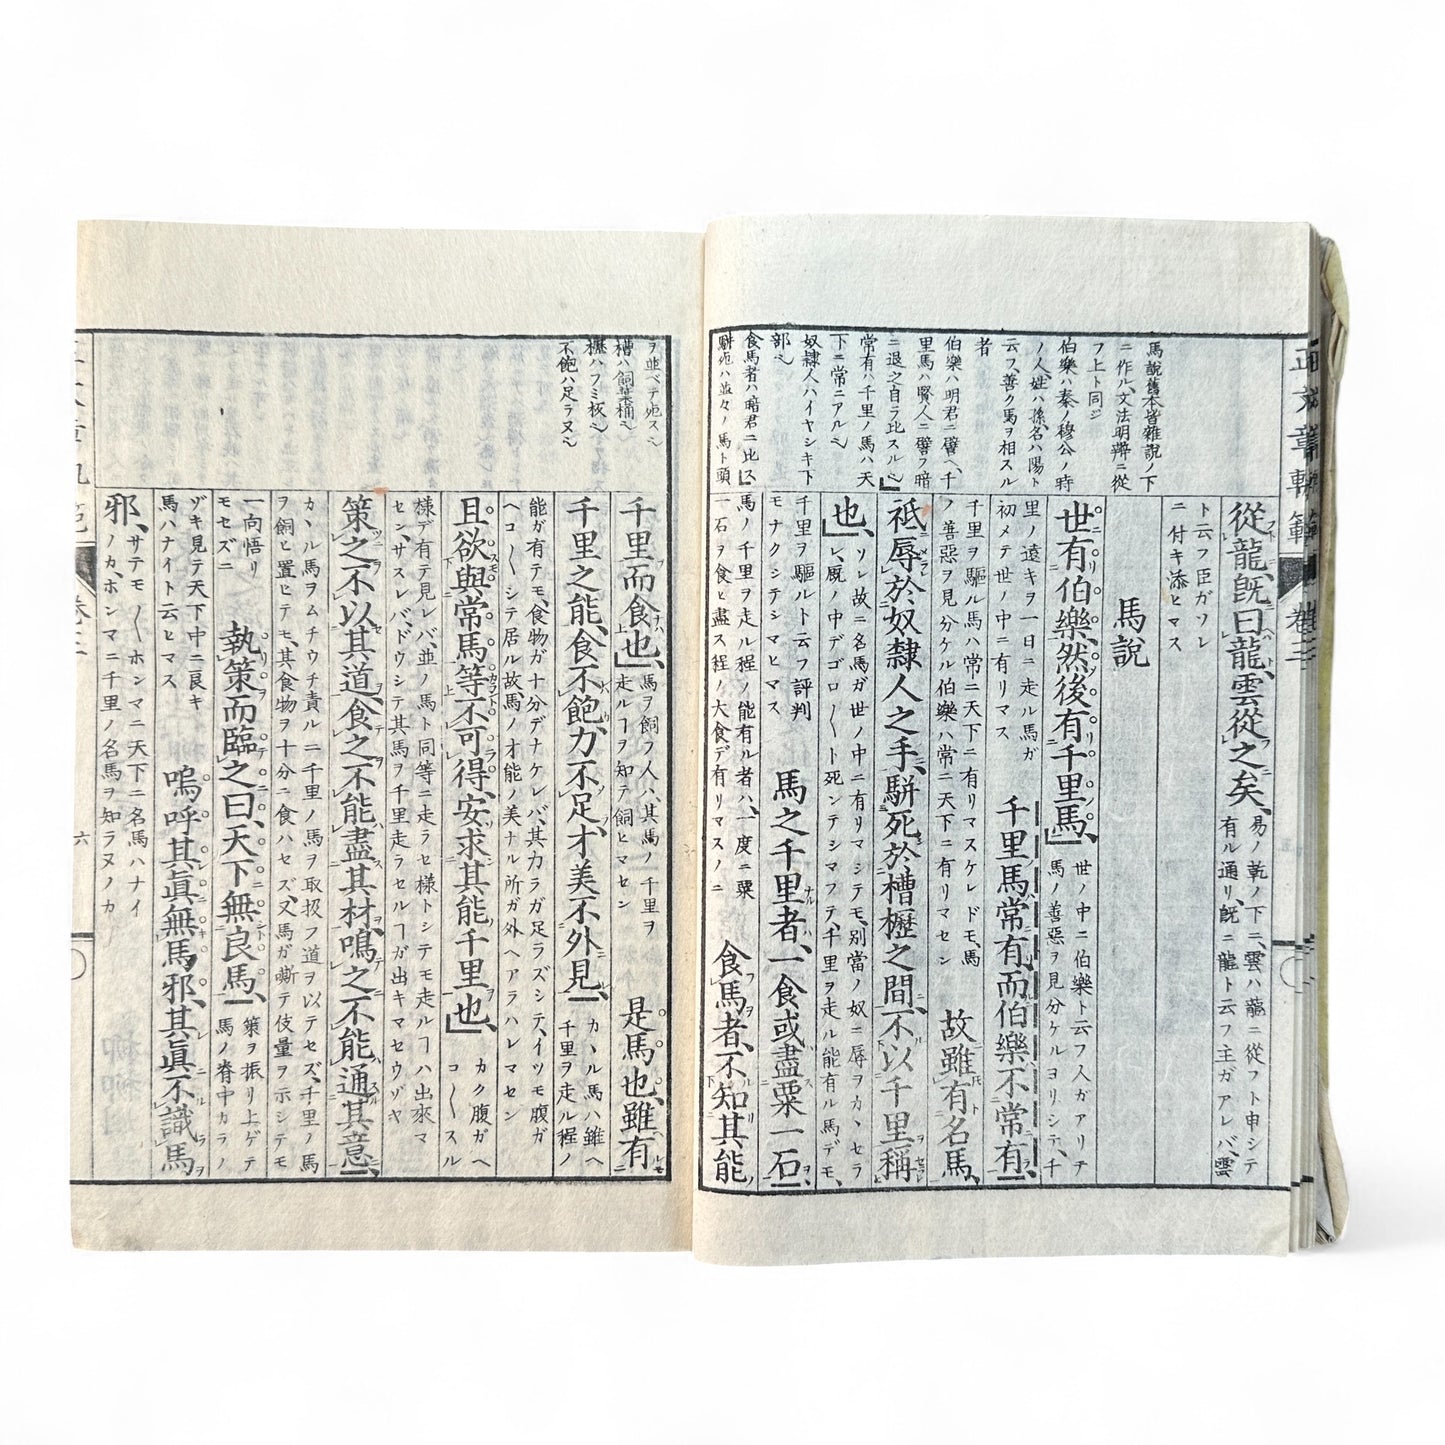 正文章軌範
卷三
馬說舊本皆雜說ノ下
ニ作ル、文法明辨ニ從
フ上ト同ジ
伯樂ハ秦ノ穆公ノ時
ノ人、姓ハ孫、名ハ陽ト
云フ、善ク馬ヲ相スル
者
伯樂ハ明君ニ譬ヘ、千
里馬ハ賢人ニ譬フ暗
ニ退之自ラ比スル
常有ハ千里ノ馬ハ天
下ニ常ニアル
奴隸人ハイヤシキ下
部
食馬者ハ暗君ニ比ス
駢死ハ並々ノ馬ト頭
從龍、既曰龍、雲從之矣、易ノ乾ノ下ニ、雲ハ龍ニ從フト申シテ
有ル通リ、既ニ龍ト云フ主ガアレバ、雲
ト云フ臣ガソレ
ニ付キ添ヒマス
馬說
世有伯樂、然後有千里馬、世ノ中ニ伯樂ト云フ人ガアリテ
馬ノ善惡ヲ見分ケルヨリシテ、千
里ノ遠キヲ一日ニ走ル馬ガ
初メテ世ノ中ニ有リマス
千里馬常有、而伯樂不常有、
千里ヲ驅ル馬ハ常ニ天下ニ有リマスケレドモ、馬
ノ善惡ヲ見分ケル伯樂ハ常ニ天下ニ有リマセン
故雖有名馬、
祗辱於奴隸人之手、駢死於槽櫪之間、不以千里稱
也、ソレ故ニ名馬ガ世ノ中ニ有リマシテモ、別當ノ奴ニ辱ヲカヽセラ
レ、厩ノ中デゴロ〳〵ト死ンデシマフテ、千里ヲ走ル能有ル馬デモ、
千里ヲ驅ルト云フ評判
モナクシテシマヒマス
馬之千里者、一食或盡粟一石、
馬ノ千里ヲ走ル程ノ能有ル者ハ、一度ニ粟
一石ヲ食ヒ盡ス程ノ大食デ有リマスノニ
食馬者、不知其能
ヲ並ベテ死ス
槽ハ飼葉桶
櫪ハフミ板
不飽ハ足ラヌ
千里而食也、馬ヲ飼フ人ハ、其馬ノ千里ヲ
走ルヿヲ知テ飼ヒマセン
是馬也、雖有
千里之能、食不飽、力不足、才美不外見、カヽル馬ハ雖ヘ
千里ヲ走ル程ノ
能ガ有テモ、食物ガ十分デナケレバ、其力ラガ足ラズシテ、イツモ腹ガ
ヘコ〳〵シテ居ル故、馬ノ才能ノ美ナル所ガ外ヘアラハレマセン
且欲與常馬等、不可得、安求其能千里也、カク腹ガヘ
コ〳〵スル
樣デ有テ見レバ、並ノ馬ト同等ニ走ラセ樣トシテモ走ルヿハ出來マ
セン、サスレバ、ドウシテ其馬ヲ千里走ラセルヿガ出キマセウゾヤ
策之不以其道、食之不能盡其材、鳴之不能通其意、
カヽル馬ヲムチウチ責ル二千里ノ馬ヲ取扱フ道ヲ以テセズ、千里ノ馬
ヲ飼ヒ置ヒテモ、其食物ヲ十分ニ食ハセズ、又馬ガ嘶テ伎量ヲ示シテモ
一向悟リ
モセズニ
執策而臨之曰、天下無良馬、策ヲ振リ上ゲテ
馬ノ脊中カラノ
ゾキ見テ天下中ニ良キ
馬ハナイト云ヒマス
嗚呼、其眞無馬邪、其眞不識馬
邪、サテモ〳〵ホンマニ天下ニ名馬ハナイ
ノカ、ホンマニ千里ノ名馬ヲ知ラヌノカ
卷三
六